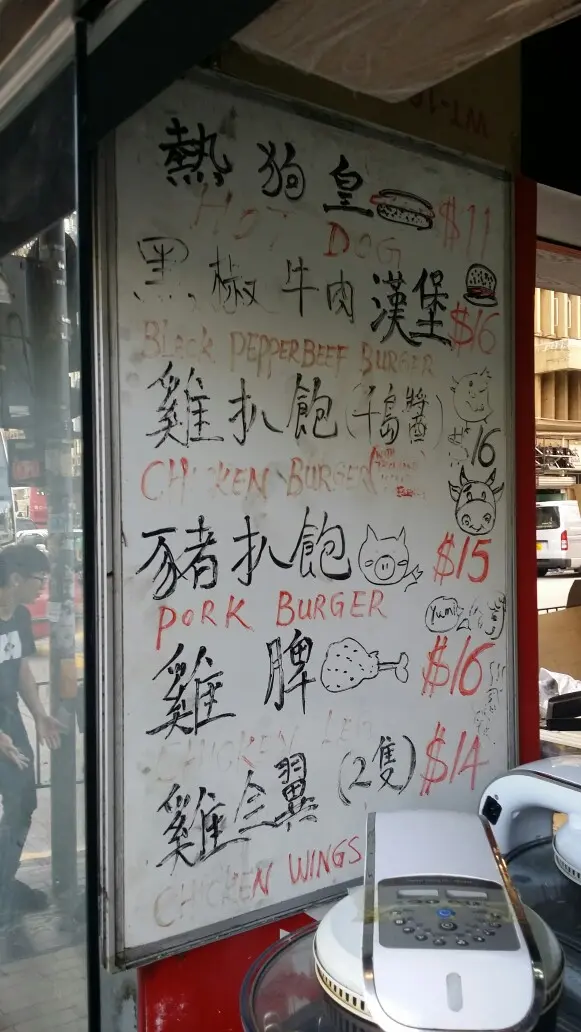 熱狗皇 $11
HOT DOG
黑椒牛肉漢堡 $16
BLACK PEPPERBEEF BURGER
雞扒飽(千島醬) $16
CHICKEN BURGER
豬扒飽 $15
PORK BURGER
Yumi
雞脾 $16
CHICKEN LEG
雞全翼(2隻) $14
CHICKEN WINGS